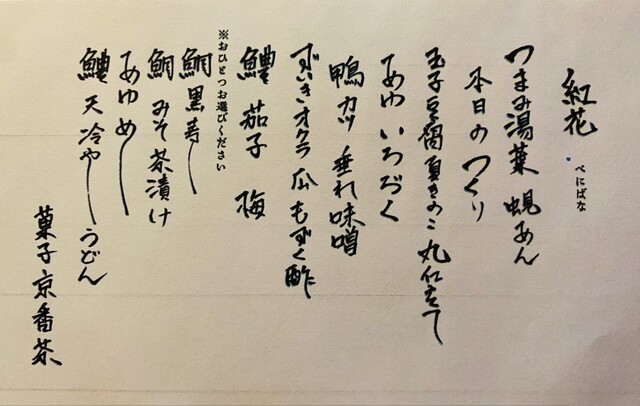 紅花
べにばな
つまみ湯葉 蜆あん
本日のつくり
玉子豆腐 夏きのこ 丸仕立て
あゆ いろづく
鴨カツ 垂れ味噌
ずいきオクラ 瓜 もずく酢
鱧 茄子 梅
※おひとつお選びください
鯛黒寿し
鯛みそ茶漬け
あゆめし
鱧天冷やしうどん
菓子 京番茶